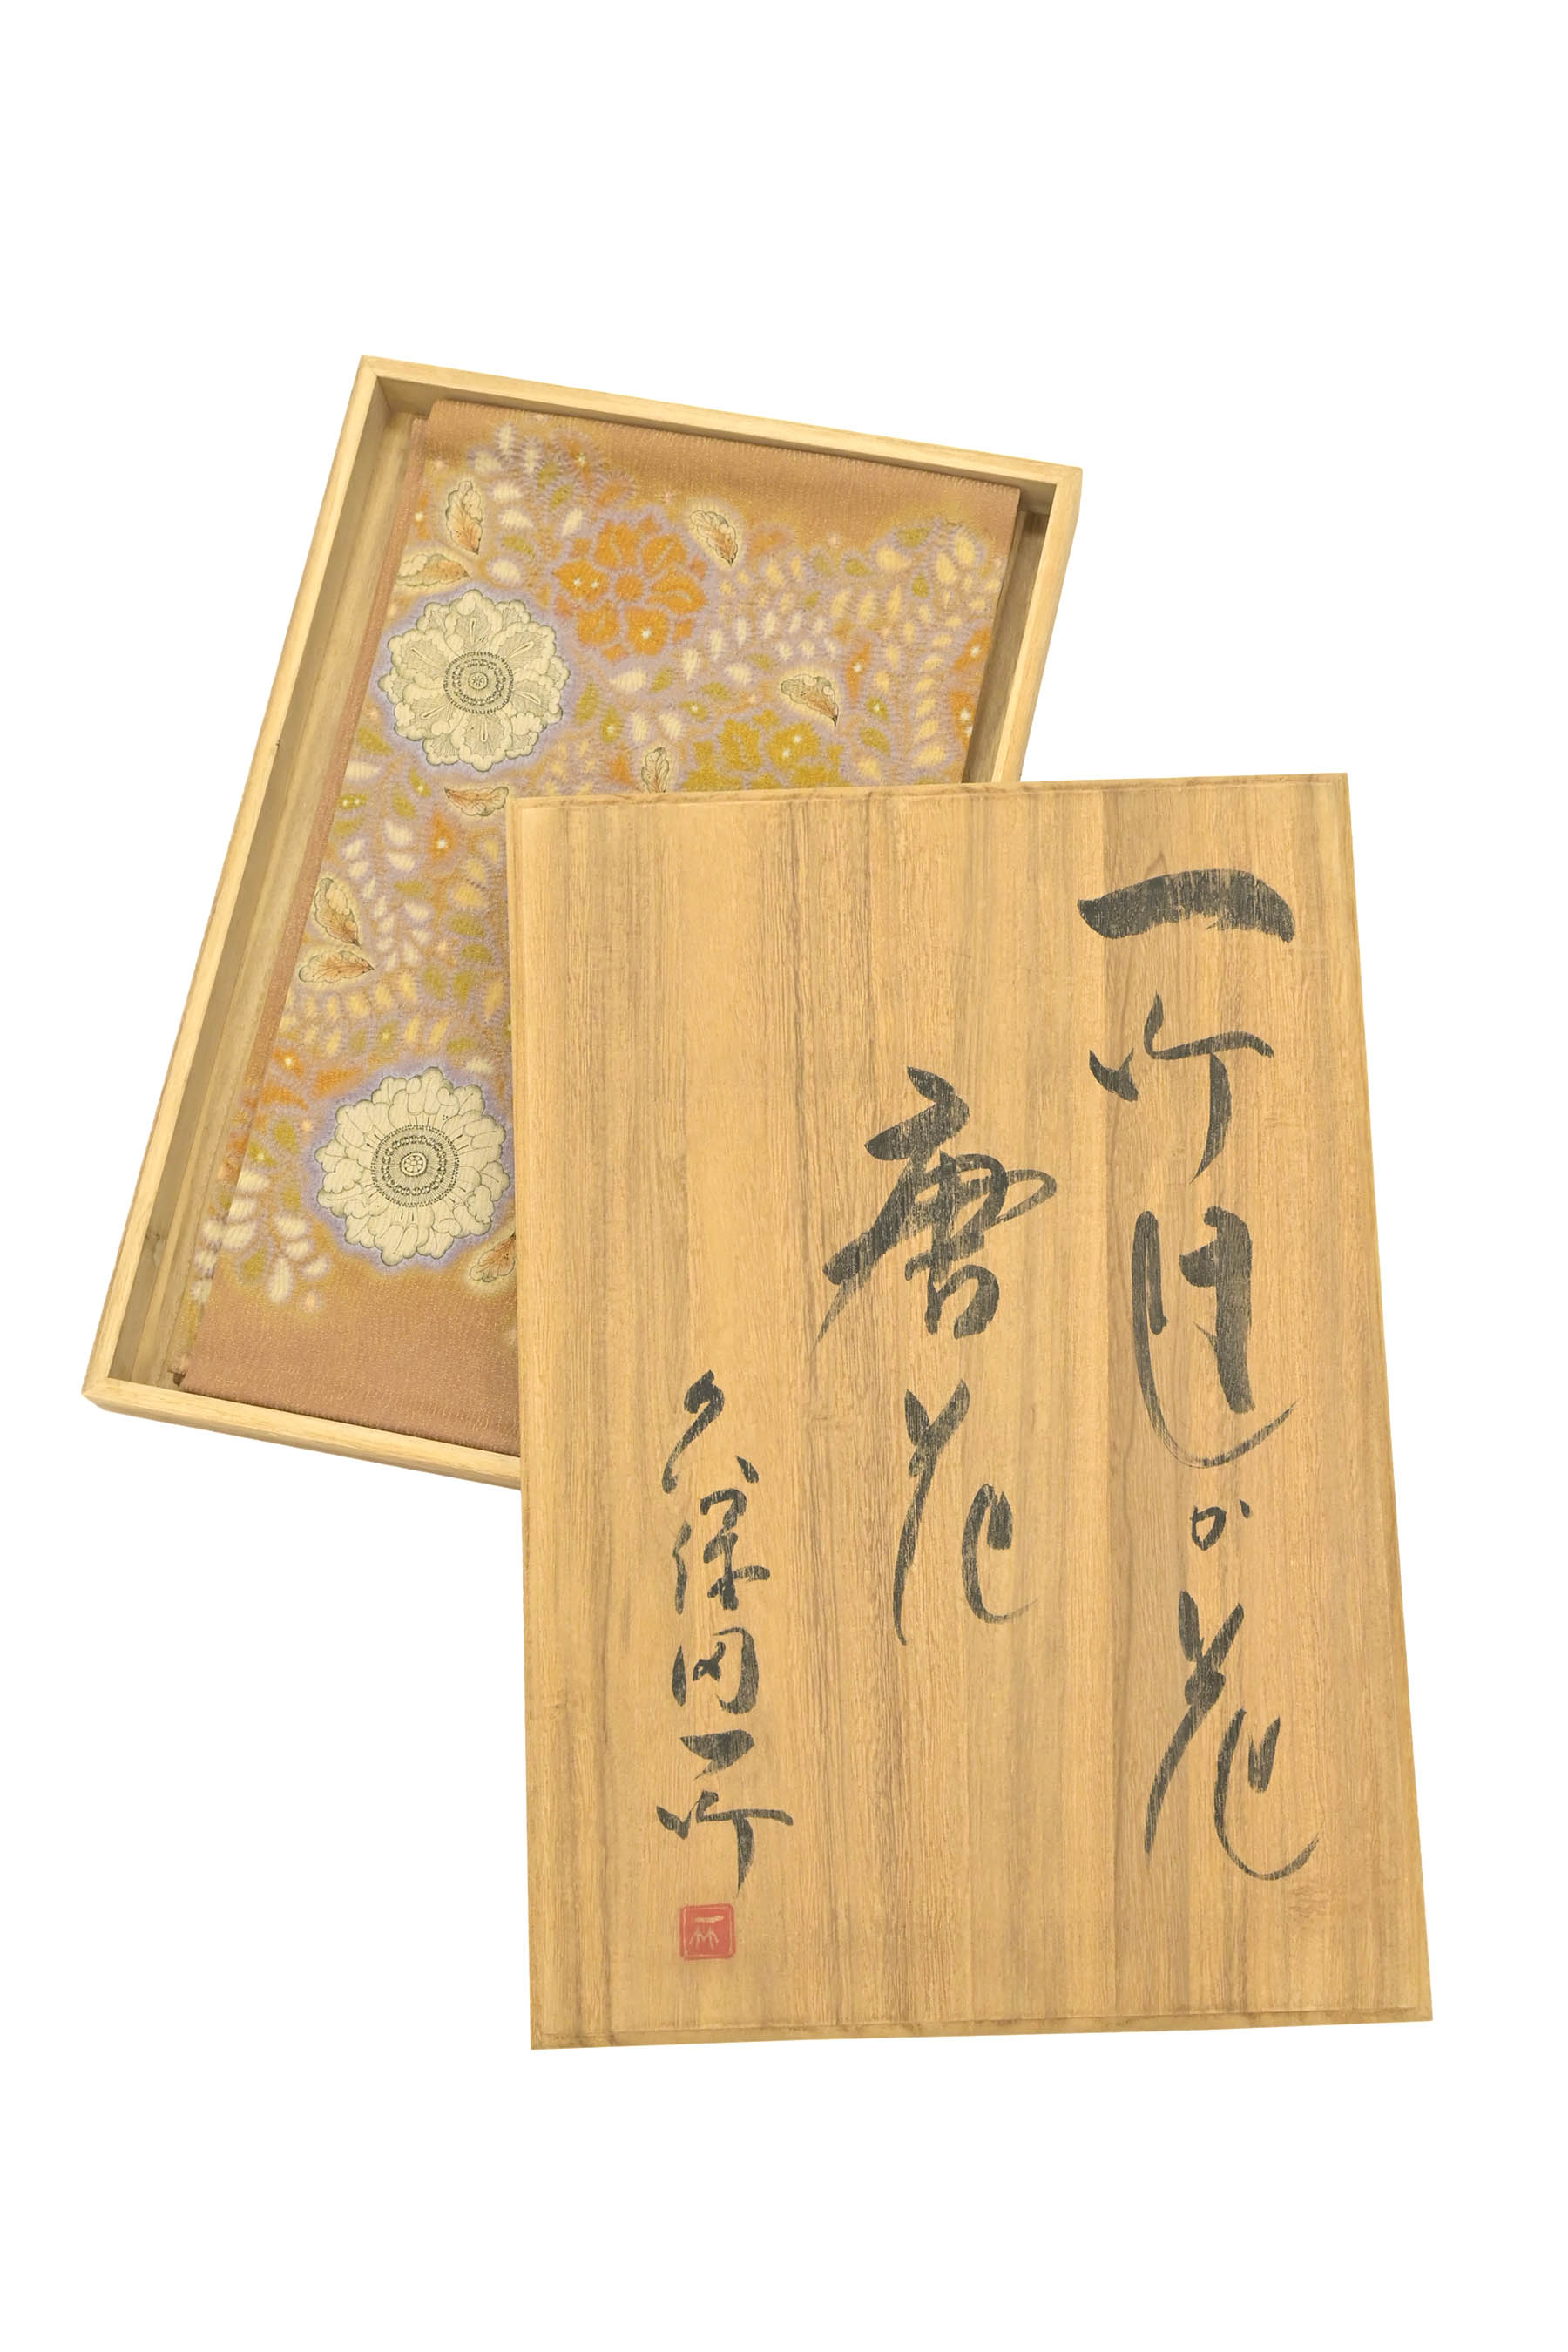 一竹辻か花
唐花
久保田一竹
一竹